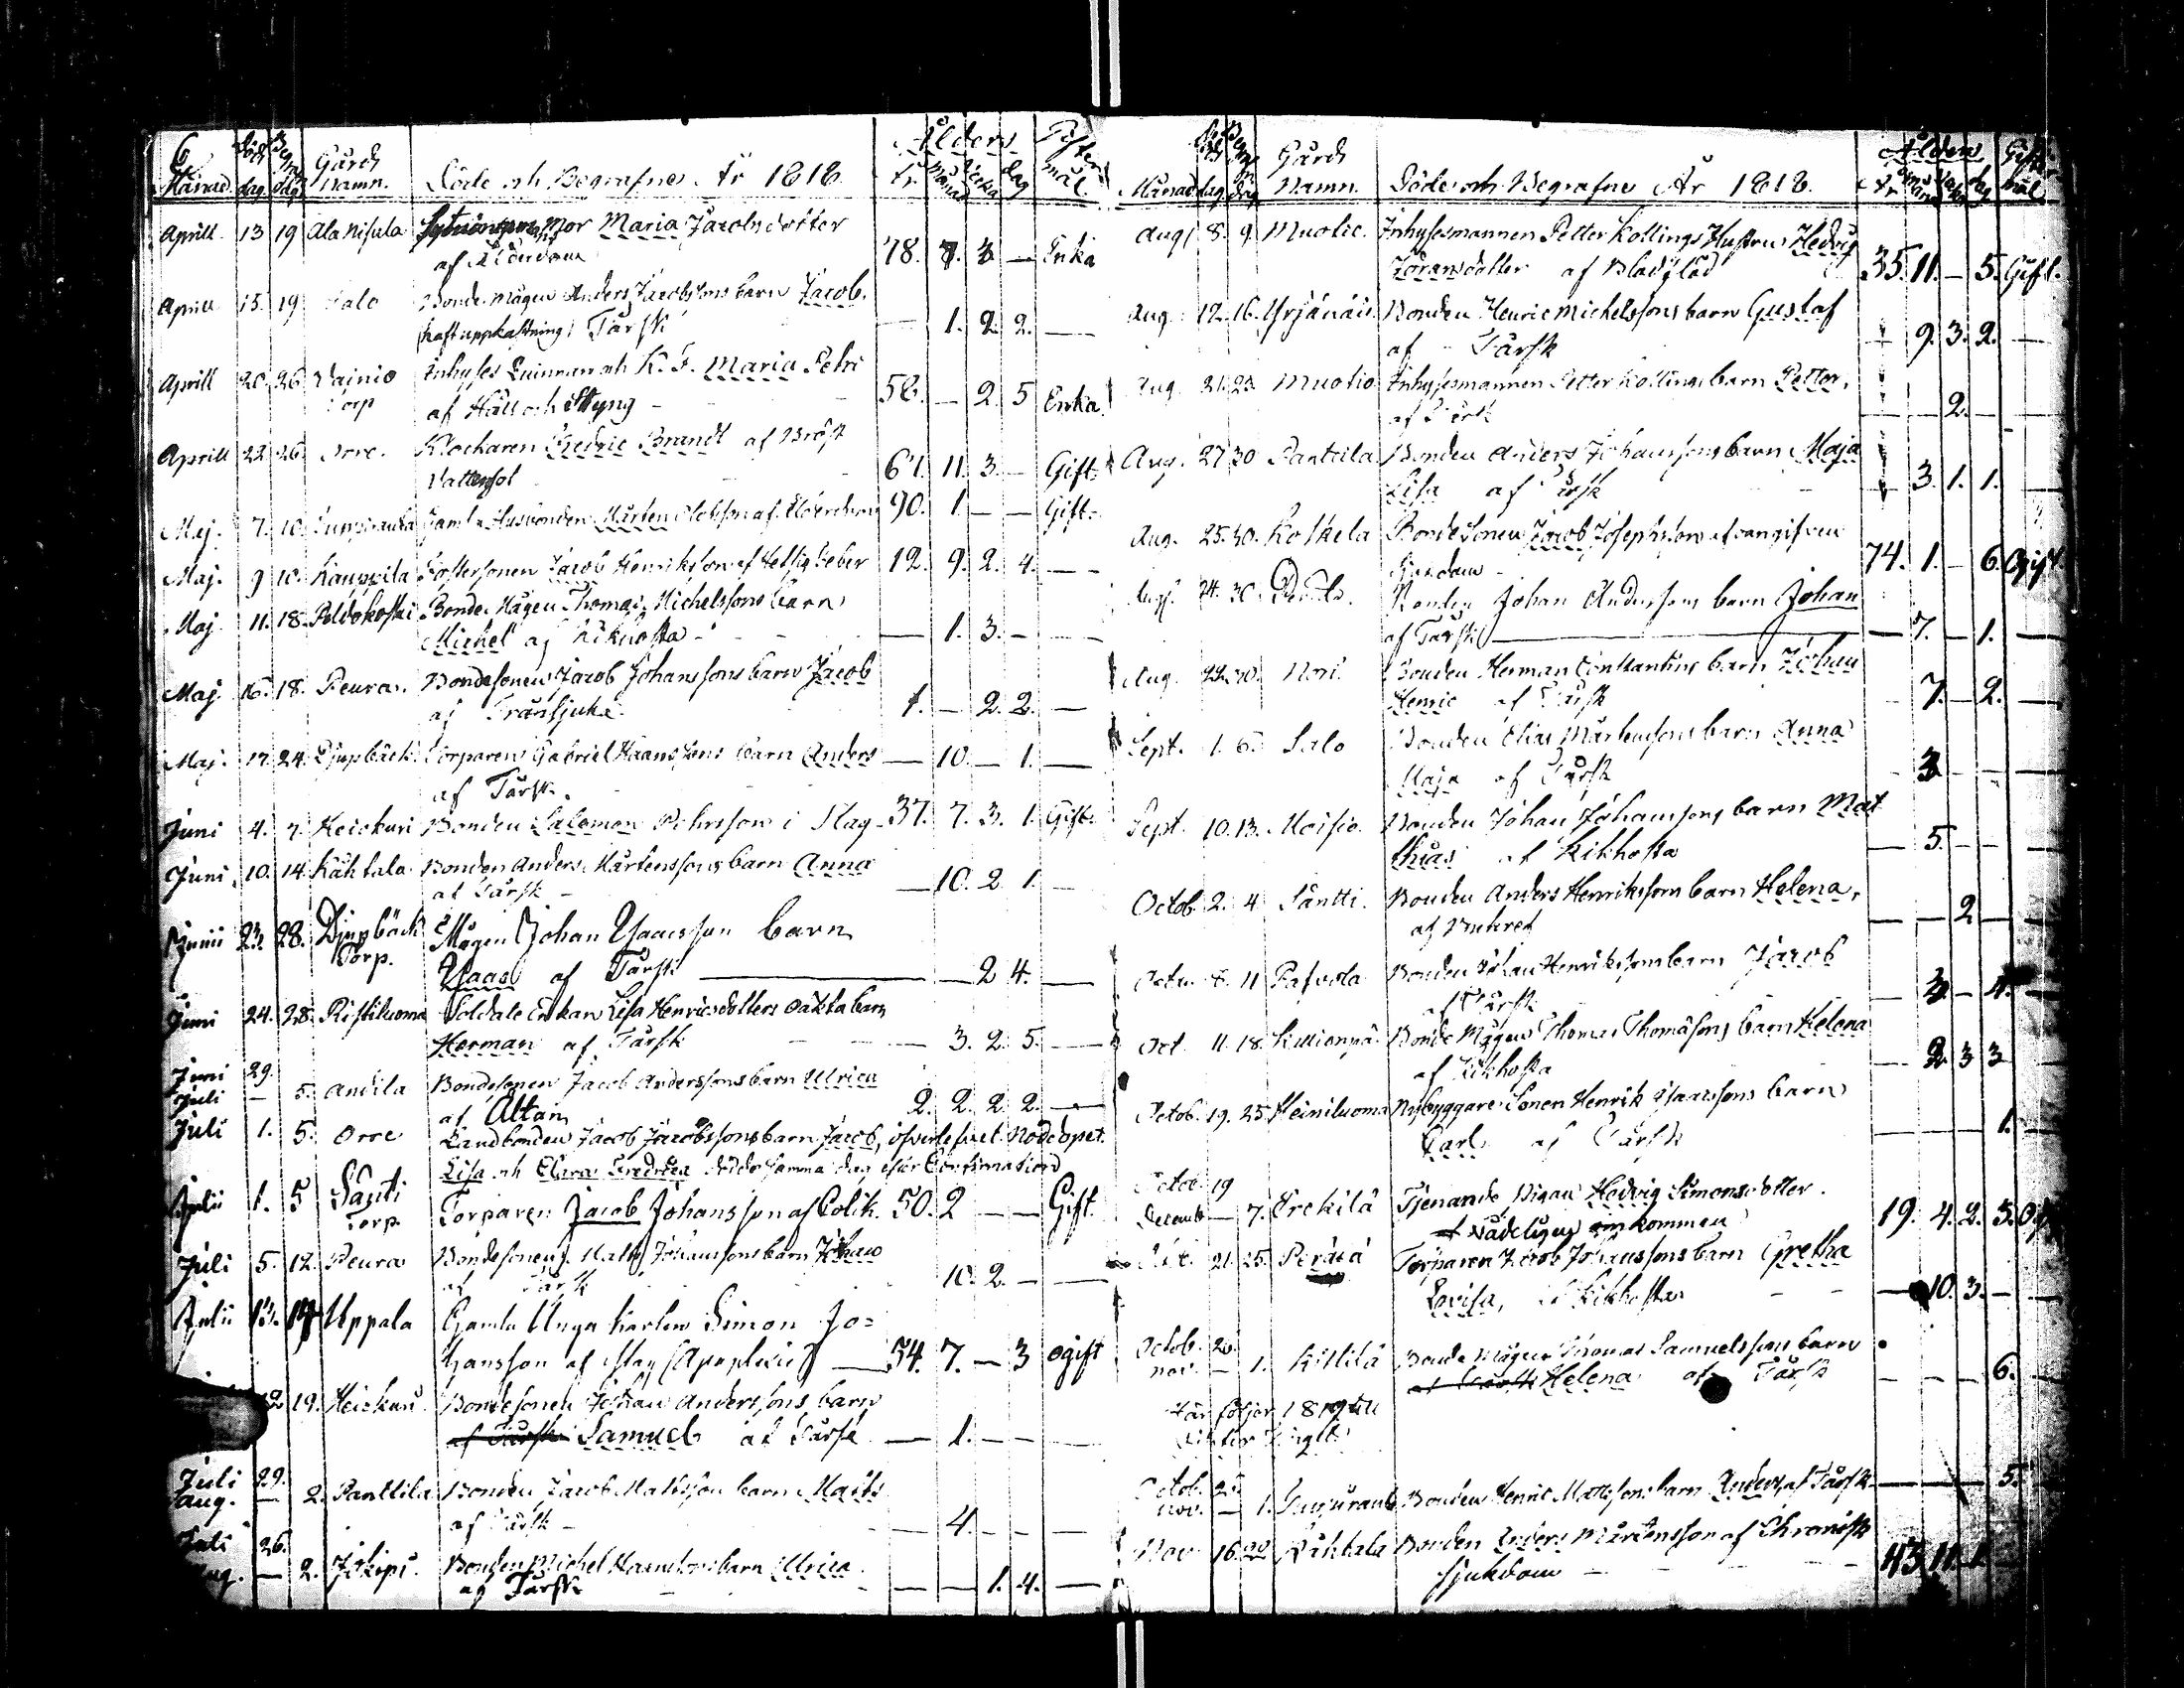 6
Månad dag. dag. Gårds Namn. Döde och Begrafne År 1818. Ålder År Månad Vecka dag
Aprill 13 19 Alanisula Mor Maria Jacobsdotter
af Ålderdom 78. 7. 3 — Enka
Aprill 15. 19 Salo Bonde Mågen Anders Jacobssons barn Jacob.
Tärsk — 1. 2. 2. —
Aprill 20. 26 Vainio Torp Inhyses Maria Petri
af Håll och Styng 58. — 2. 5 Enka
Aprill 22 26 Orre. Klockaren Fredric Brandt af Bröst
Vattusot 67. 11. 3. — Gift
Maj. 7. 10. Gamla Husbonden Mårten af Ålderdom 90. 1. — — Gift.
Maj. 9 10. Kauppila Fostersonen Jacob Henriksson af Hetsig Feber 12. 9. 2. 4. —
Maj 11. 18. Bonde Mågen Thomas Michelssons barn
Michel af Kikhosta — 1. 3. — —
Maj 16. 18. Peura. Bondesonens Jacob Johanssons barn Jacob
af Tränsjuka 1. — 2. 2. —
Maj. 17. 24. Djupbäck Torparen Gabriel barn Anders — 10. — 1. —
af Tärsk.
Juni 4. 7. Keickuri Bonden Salomon Pehrsson i Slag 37. 7. 3. 1. Gift.
Juni. 10. 14. Kähtala Bonden Anders Mårtenssons barn Anna
af Tärsk — 10. 2 1. —
Junii 23. 28. Djupbäck Torp. Mågen Johan Isaacsson barn
Isaac af Tärsk — — 2 4. —
Juni 24. 28. Ristiluoma Soldate Enkan Lisa Henricsdotters oäkta barn
Herman af Tärsk — 3. 2. 5. —
Juni 29.
Juli — 5. Andila Bondesonen Jacob Anderssons barn Ulrica
af Altan 2. 2. 2. 2. —
Juli 1. 5. Orre Landbonden Jacob Jacobssons barn Jacob,
Lisa och Clara Fredrica samma dag
Julii 1. 5 Santi Torp. Torparen Jacob Johansson af Colik. 50. 2 — — Gift
Juli 5. 12. Peura Bondesonens Matts Johanssons barn Johan
af Tärsk 10. 2. — —
Julii 13. 19 Uppala Gamla Unga karlen Simon Jo=
hansson af Slag (Apoplexie) — 54. 7. — 3 ogift
12 19. Heickuri Bondesonen Johan Anderssons barn
af Tärsk Samuel af Tärsk — 1. — — —
Juli 29.
Aug. — 2. Panttila Bonden Jacob Mattsson barn Maits
af Tärsk — 4. — — —
Juli 26.
Aug. — 2. Jokipi. Bonden Michel barn Ulrica
af Tärsk — — 1. 4. —
Månad dag dag Gårds Namn. Döde och Begrafne År 1818. Ålder
Aug 8. 9. Muotio. Inhysesmannen Petter Kollings Hustru Hedvig
Göransdotter af 35. 11. — 5. Gift.
Aug. 12. 16. Yrjänäis. Bonden Henric Michelssons barn Gustaf
af Tärsk — 9. 3. 2. —
Aug. 21. 23. Muotio Inhysesmannen Petter Kollings barn Petter,
af Tärsk — — 2. —
Aug. 27 30 Panttila Bonden Anders Johanssons barn Maja
Lisa af Tärsk 3. 1. 1. —
Aug. 25. 30. Koskela Bondesonen Jacob Josephsson af oangifven
sjukdom 74. 1. — 6. Ogift
Aug. 24. 30. Bonden Johan Anderssons barn Johan
af Tärsk — 7. — 1. —
Aug. 22. 30. Nori. Bonden Herman Constantins barn Johan
Henric af Tärsk 7. — 2. —
Sept. 1. 6. Salo Bonden Elias Mårtenssons barn Anna
Maja af Tärsk 3 — —
Sept. 10. 13. Moisio. Bonden Johan Johanssons barn Mat
thias af Kikhosta — 5. — —
Octob. 2. 4 Säntti. Bonden Anders Henrikssons barn Helena,
af — — 2 —
8. 11 Pasvola Bonden Johan Henrikssons barn Jacob
af Tärsk — 3. — 4.
Oct. 11. 18. Killionpä Bonde Mågen Thomas Thomassons barn Helena
af Kikhosta — 2. 3 3
Octob. 19. 25 Heiniluoma Nybyggare Sonen Henrik Isaacssons barn
Carl af Tärsk — — — 1.
Octob. 19
Decemb — 7. Erckilä Tjenande Pigan Hedvig Simonsdotter.
af vådeligen omkommen 19. 4. 2. 5.
Oct. 21. 25. Perälä Torparen Jacob Johanssons barn Gretha
Lovisa, af Kikhosta — 10. 3. —
Octob. 26.
Nov. — 1. Kittilä Bonde Mågen Thomas Samuelsson barn
af Tärsk Helena af Tärsk — — — 6.
Här följer 1819
Octob. 25
Nov. — 1. Bonden Henric Mattssons barn Anders, af Tärsk — — — 5.
Nov 16 22 Kähtala Bonden Anders Mårtensson af Chronisk
sjukdom 43 11 1